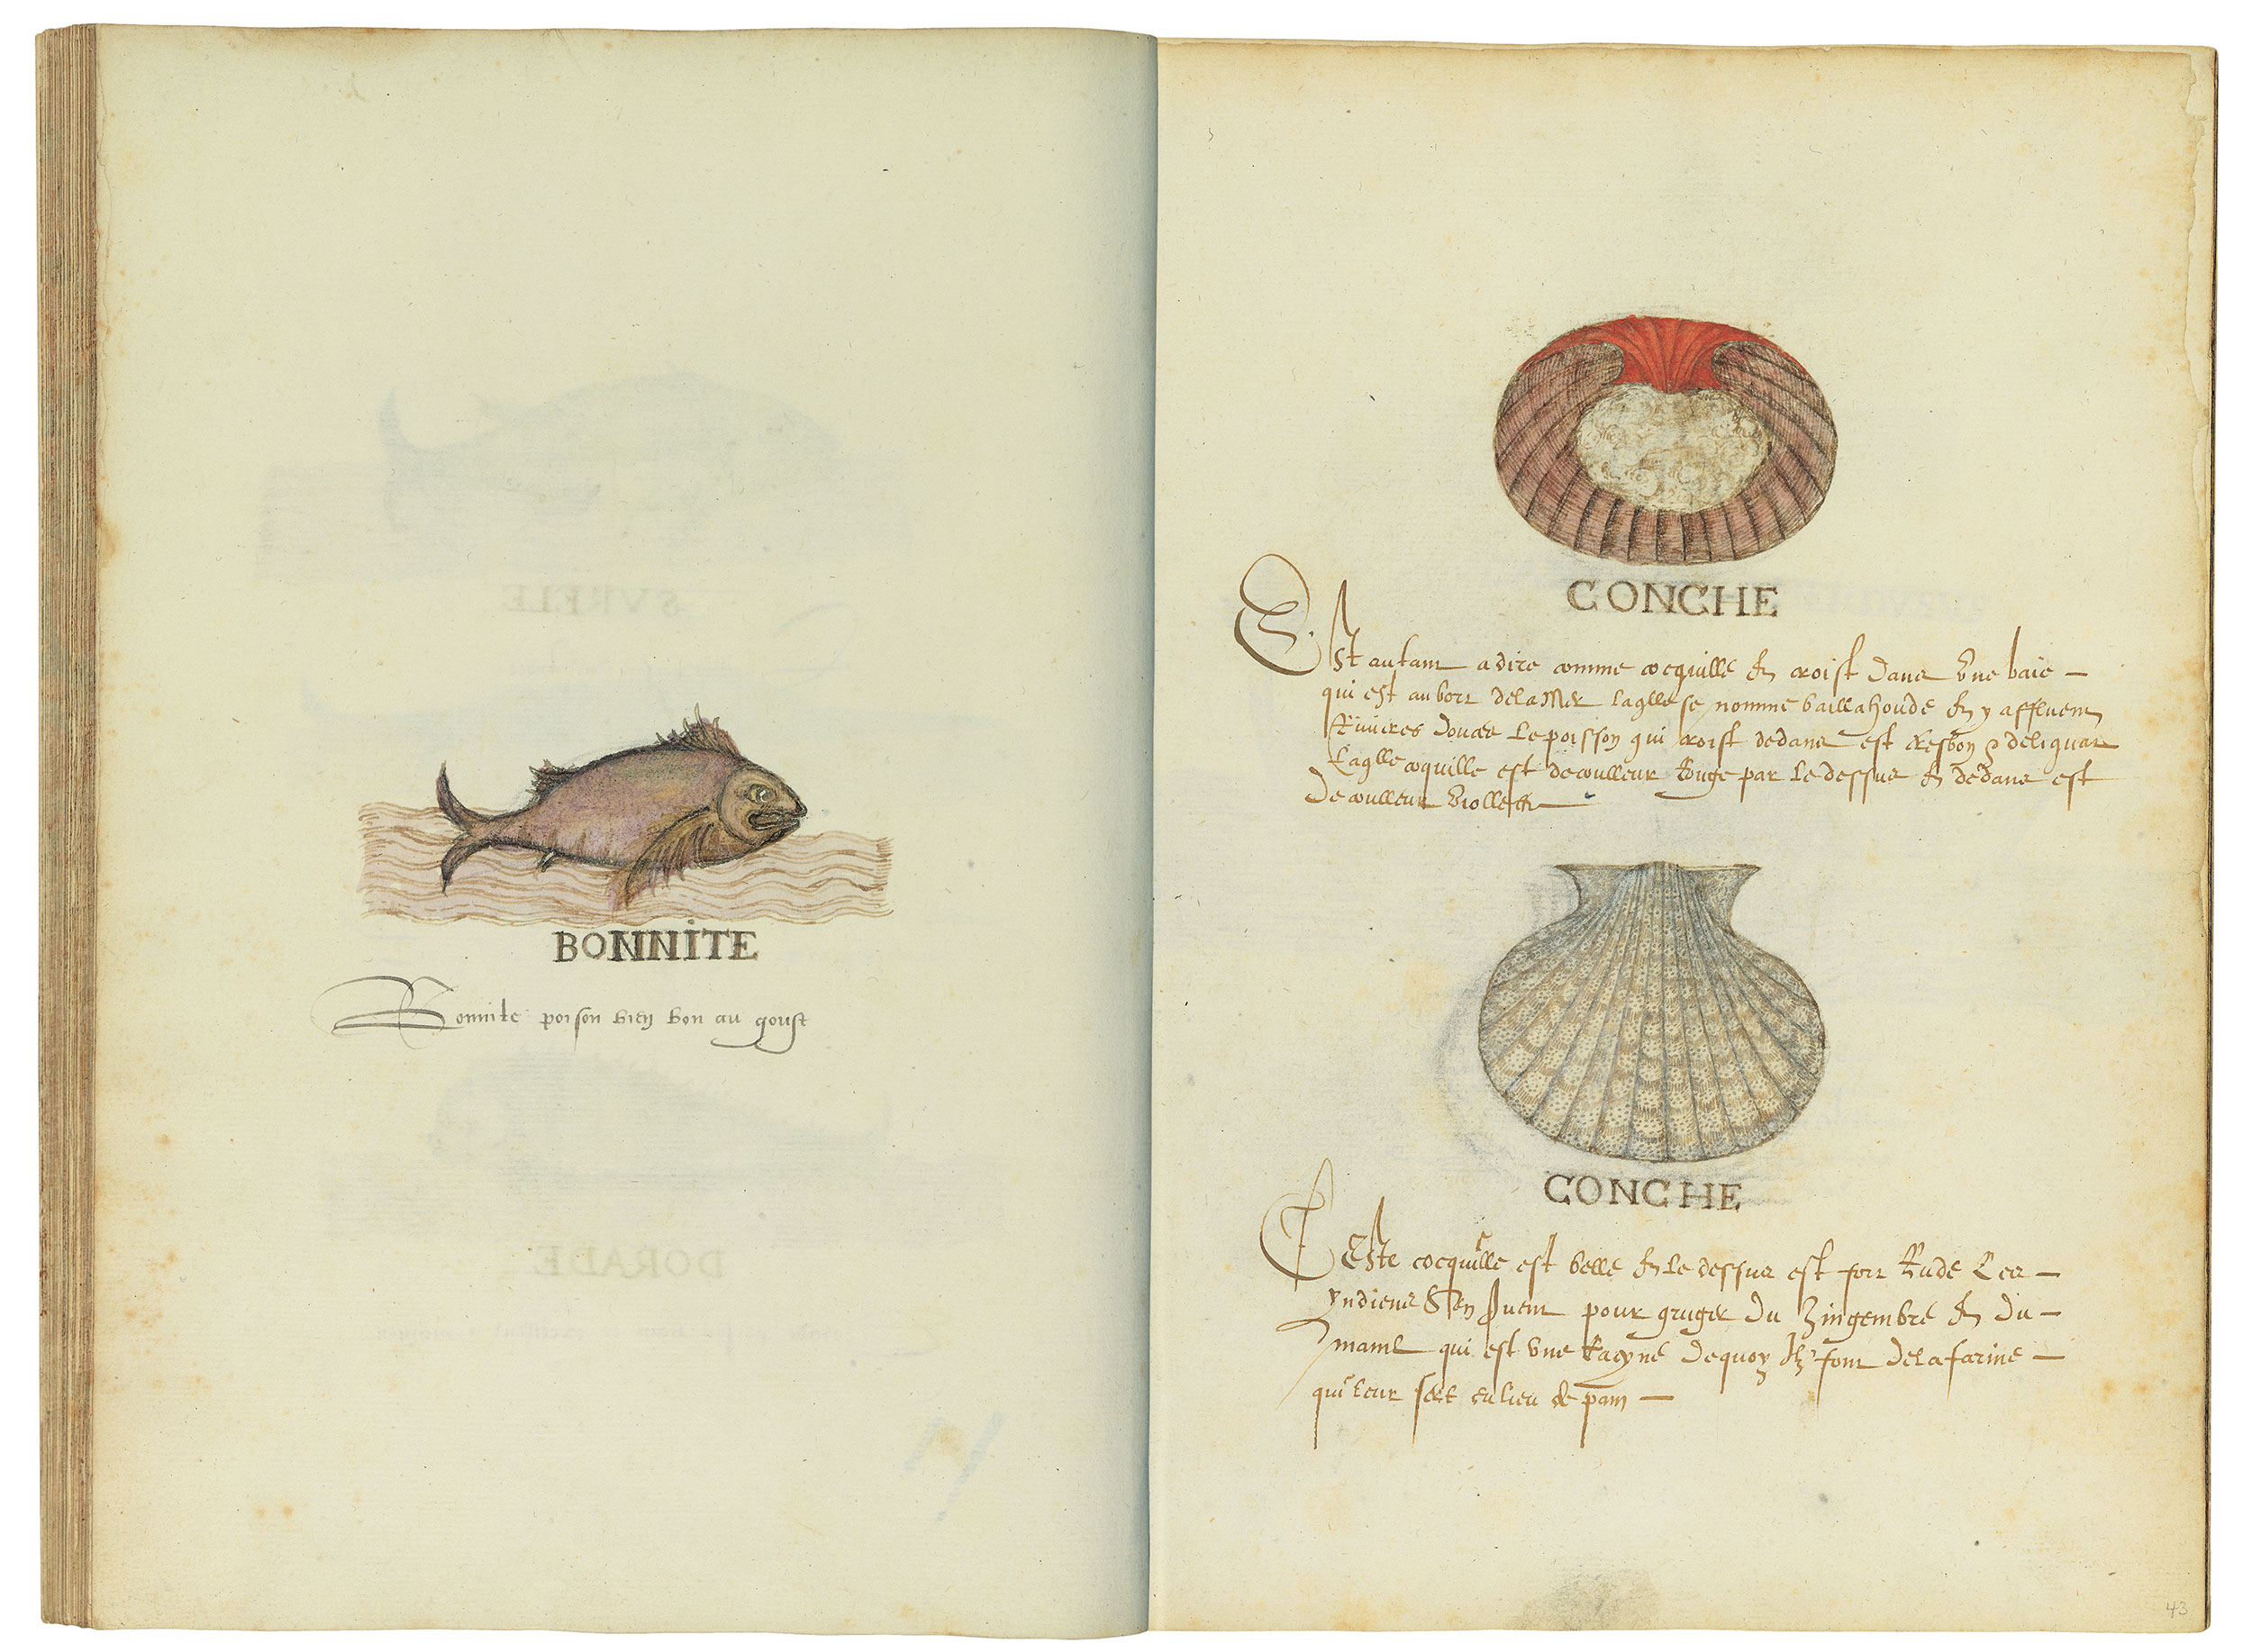 BONNITE
Bonnite poison bien bon au goust
CONCHE
Est autant a dire comme cocquille & croist dans vne baie
qui est au bort de la Mer laqlle se nomme baillahonde & y affluent
Riuieres douces Le poisson qui croist dedans est tresbon & deliquat
Laqlle coquille est de coulleur Rouge par le dessus & dedans est
De coulleur viollette
CONCHE
Ceste cocquille est belle & le dessus est fort Rude Les
yndiens s'en seruent pour gruger du Zingembre & du
maml qui est vne Racyne de quoy Ilz font de la farine
qui leur sert au lieu de pain
43